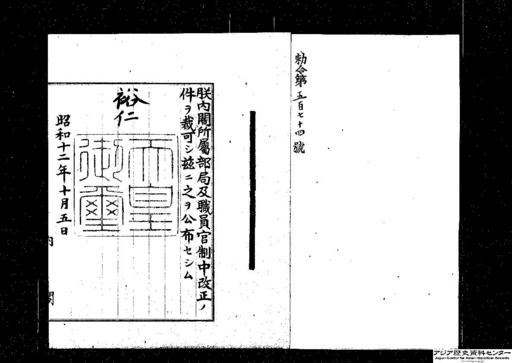 勅令第五百七十四號
朕内閣所屬部局及職員官制中改正ノ
件ヲ裁可シ茲ニ之ヲ公布セシム
裕仁
天皇
御璽
昭和十二年十月五日
内閣
アジア歴史資料センター
Japan Center for Asian Historical Records